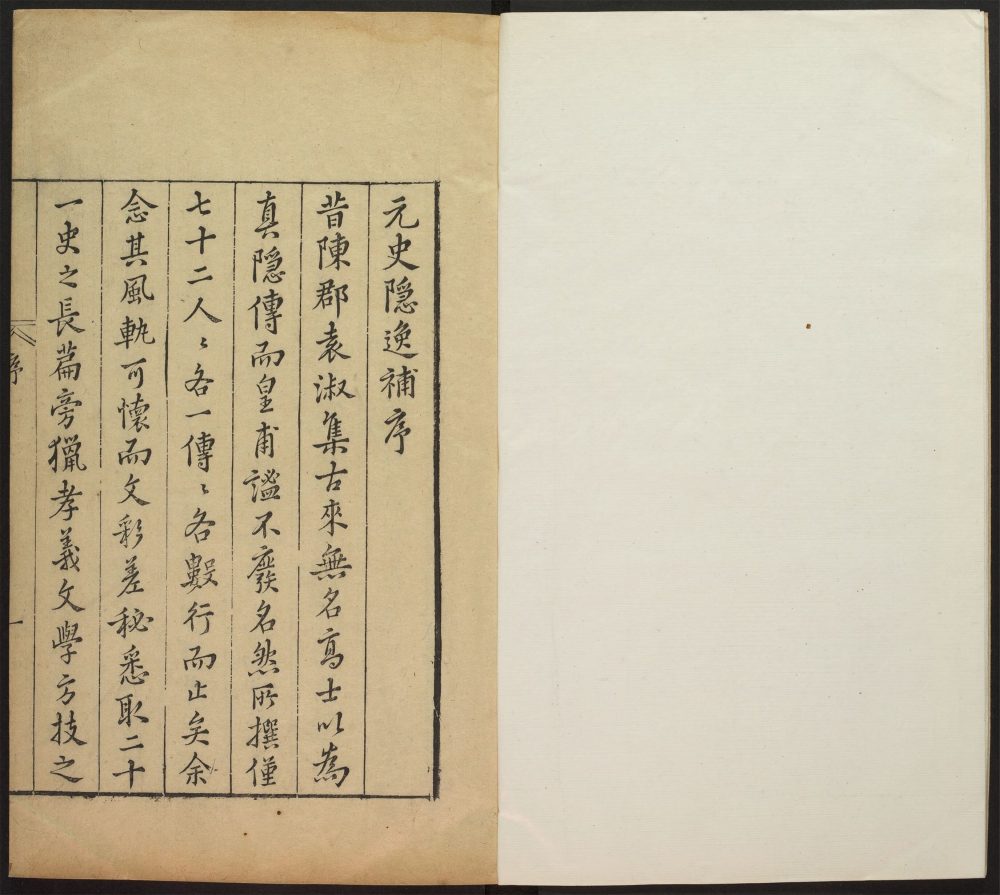 元史隱逸補序
昔陳郡袁淑集古來無名高士以為
真隱傳而皇甫謐不廢名然所撰僅
七十二人〻各一傳〻各數行而止矣余
念其風軌可懷而文彩差秘悉取二十
一史之長篇旁獵孝義文學方技之
序
一